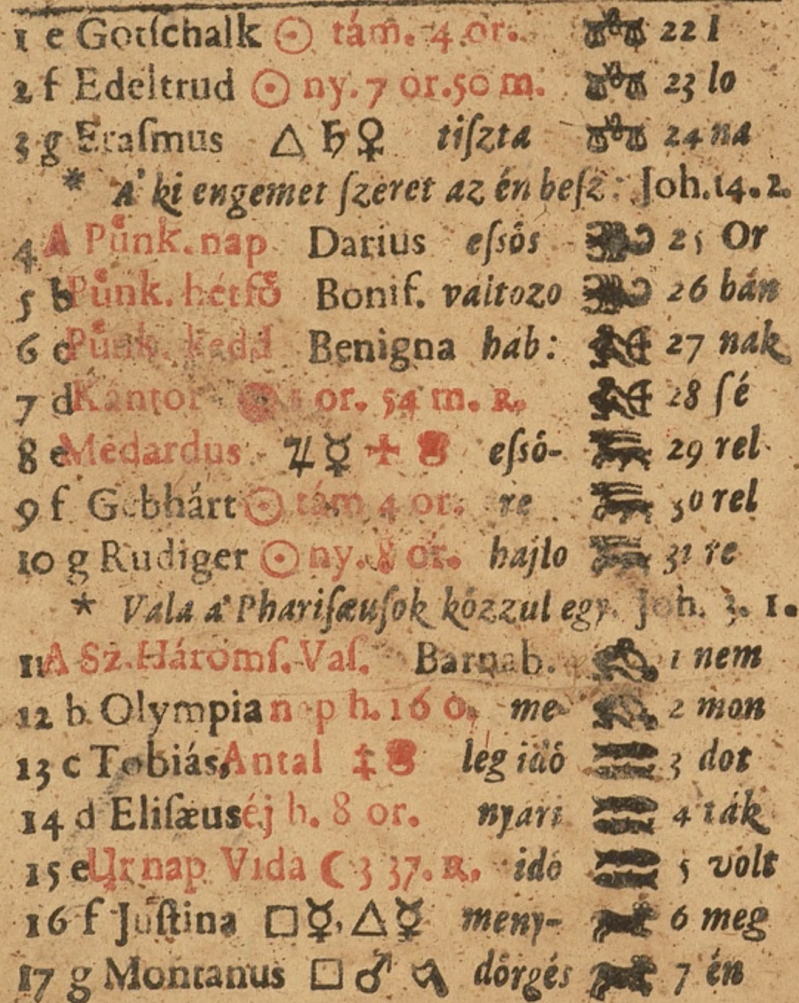 1 e Gotſchalk ☉ tám. 4 or. ♎ 22 l
2 f Edeltrud ☉ ny. 7 or. 50 m. ♎ 23 lo
3 g Eraſmus △ ♄ ♀ tiſzta ♎ 24 na
* A' ki engemet ſzeret az én beſz: Joh. 14. 2.
4 A Pũnk. nap Darius eſsős ♏ 25 Or
5 b Pũnk. hétfő Bonif. változo ♏ 26 bán
6 c Pũnk. kedd Benigna háb: ♐ 27 nak
7 d Kántor or. 54 m. R. ♐ 28 ſé
8 e Medardus ♃ ☿ eſső- ♑ 29 rel
9 f Gebhárt ☉ tám 4 or. re ♑ 30 rel
10 g Rudiger ☉ ny. 8 or. hajlo ♑ 31 re
* Vala a' Phariſæuſok kőzzul egy. Joh. 3. 1.
11 A Sz. Háromſ. Vaſ. Barnab. ♒ 1 nem
12 b Olympia nap h. 16 o. me- ♒ 2 mon
13 c Tobiás, Antal ‡ leg idő ♓ 3 dot
14 d Eliſæus éj h. 8 or. nyari ♓ 4 ták
15 e Urnap Vida ☾ 3 37. R. idő ♓ 5 volt
16 f Juſtina □ ☿, △ ☿ meny- ♈ 6 meg
17 g Montanus □ ♂ dőrgés ♈ 7 én